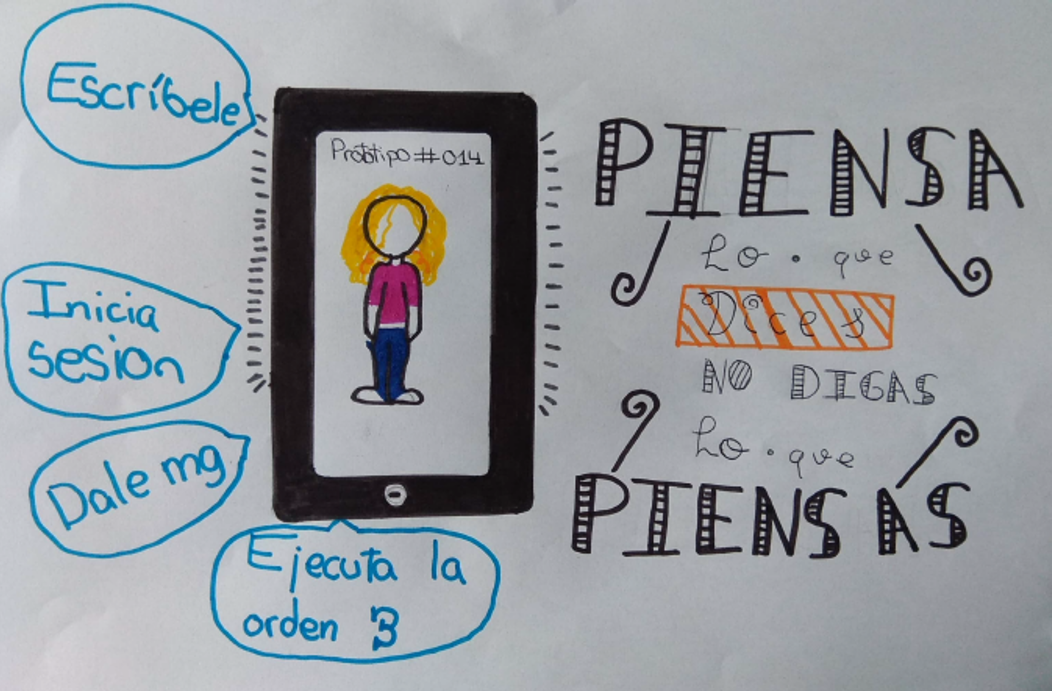 Escríbele
Inicia
sesion
Dale mg
Ejecuta la
orden 3
Prototipo #014
PIENSA
Lo · que
Dices
NO DIGAS
Lo · que
PIENSAS